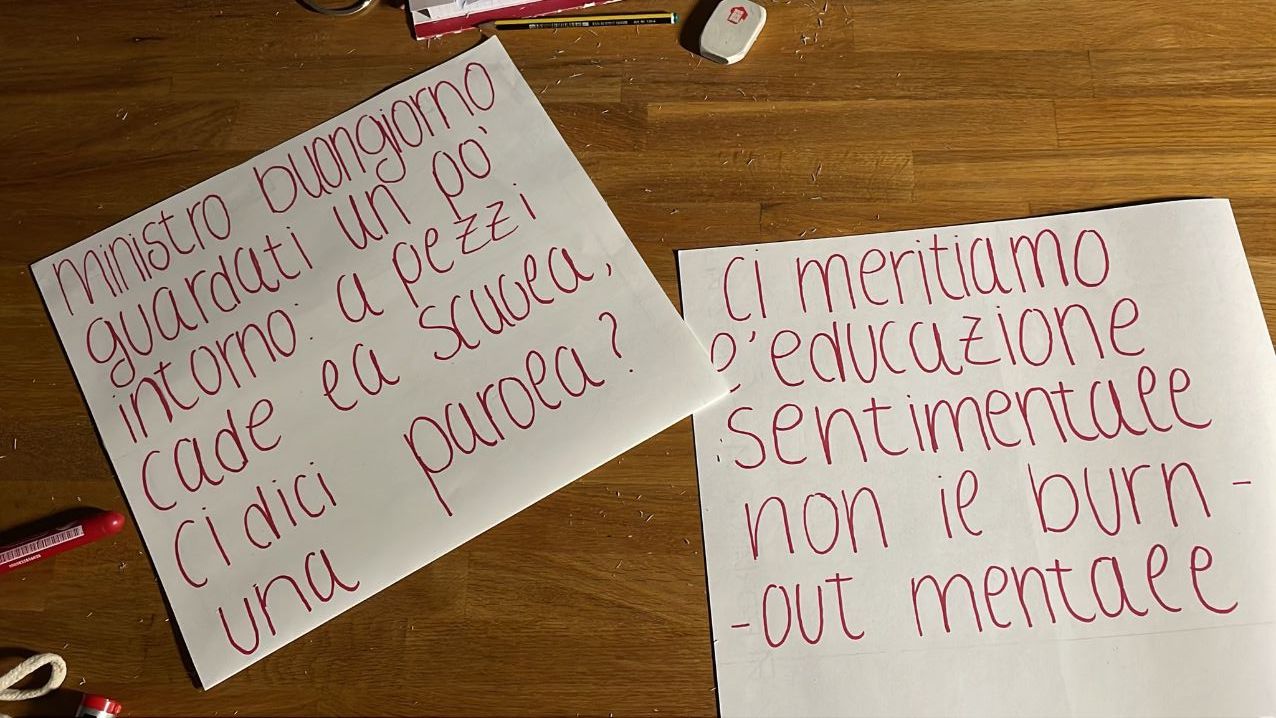 ministro buongiorno
guardati un po'
intorno: a pezzi
cade la scuola,
ci dici parola?
una
ci meritiamo
l'educazione
sentimentale
non il burn-
-out mentale